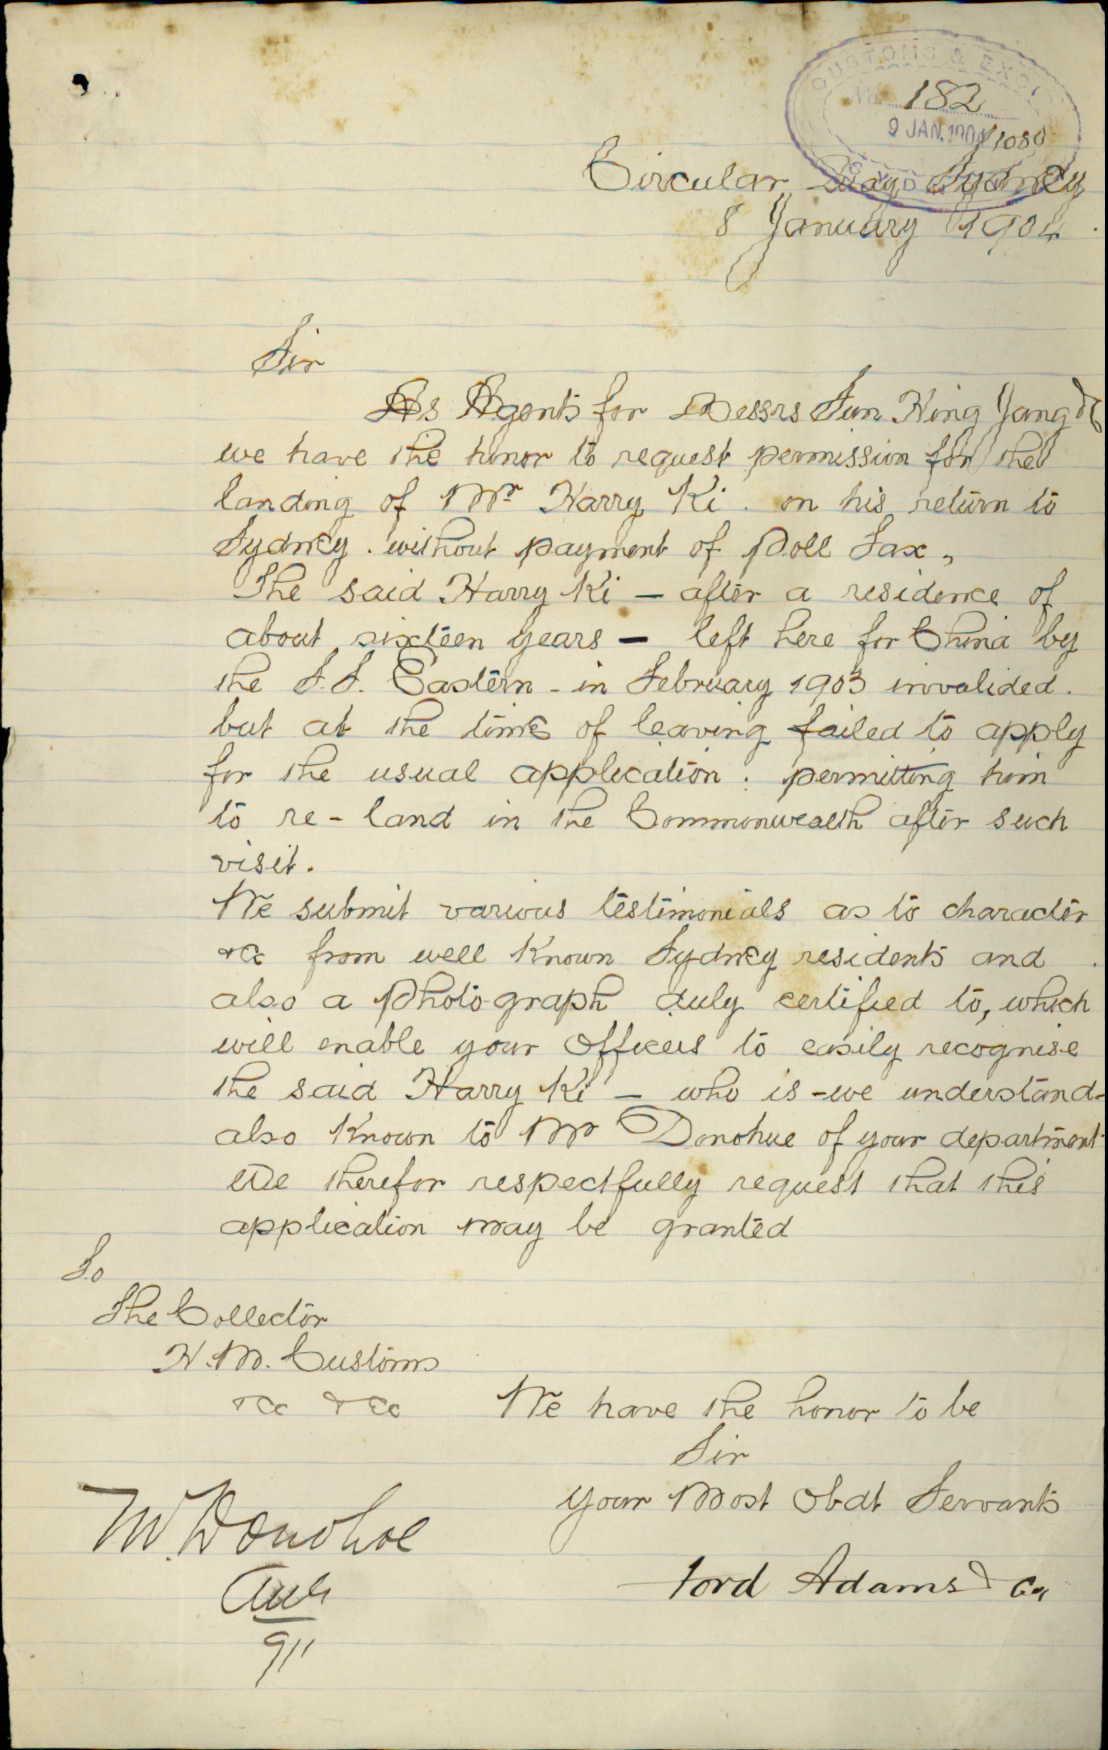 CUSTOMS & EXCI
182
9 JAN. 1904
1080
Circular Quay Sydney
8 January 1904
Sir
As Agents for Messrs Sun Hing Jang & Co
we have the honor to request permission for the
landing of Mr Harry Ki. on his return to
Sydney. without payment of Poll Tax,
The said Harry Ki - after a residence of
about sixteen years - left here for China by
the S.S. Eastern - in February 1903 invalided.
but at the time of leaving failed to apply
for the usual application: permitting him
to re-land in the Commonwealth after such
visit.
We submit various testimonials as to character
&c from well known Sydney residents and
also a Photograph duly certified to, which
will enable your Officers to easily recognise
the said Harry Ki - who is - we understand -
also known to Mr Donohue of your department
We therefor respectfully request that this
application may be granted
To
The Collector
H.M. Customs
&c &c
We have the honor to be
Sir
Your Most Obdt Servants
Ford Adams & Co
M. Donohoe
9/1